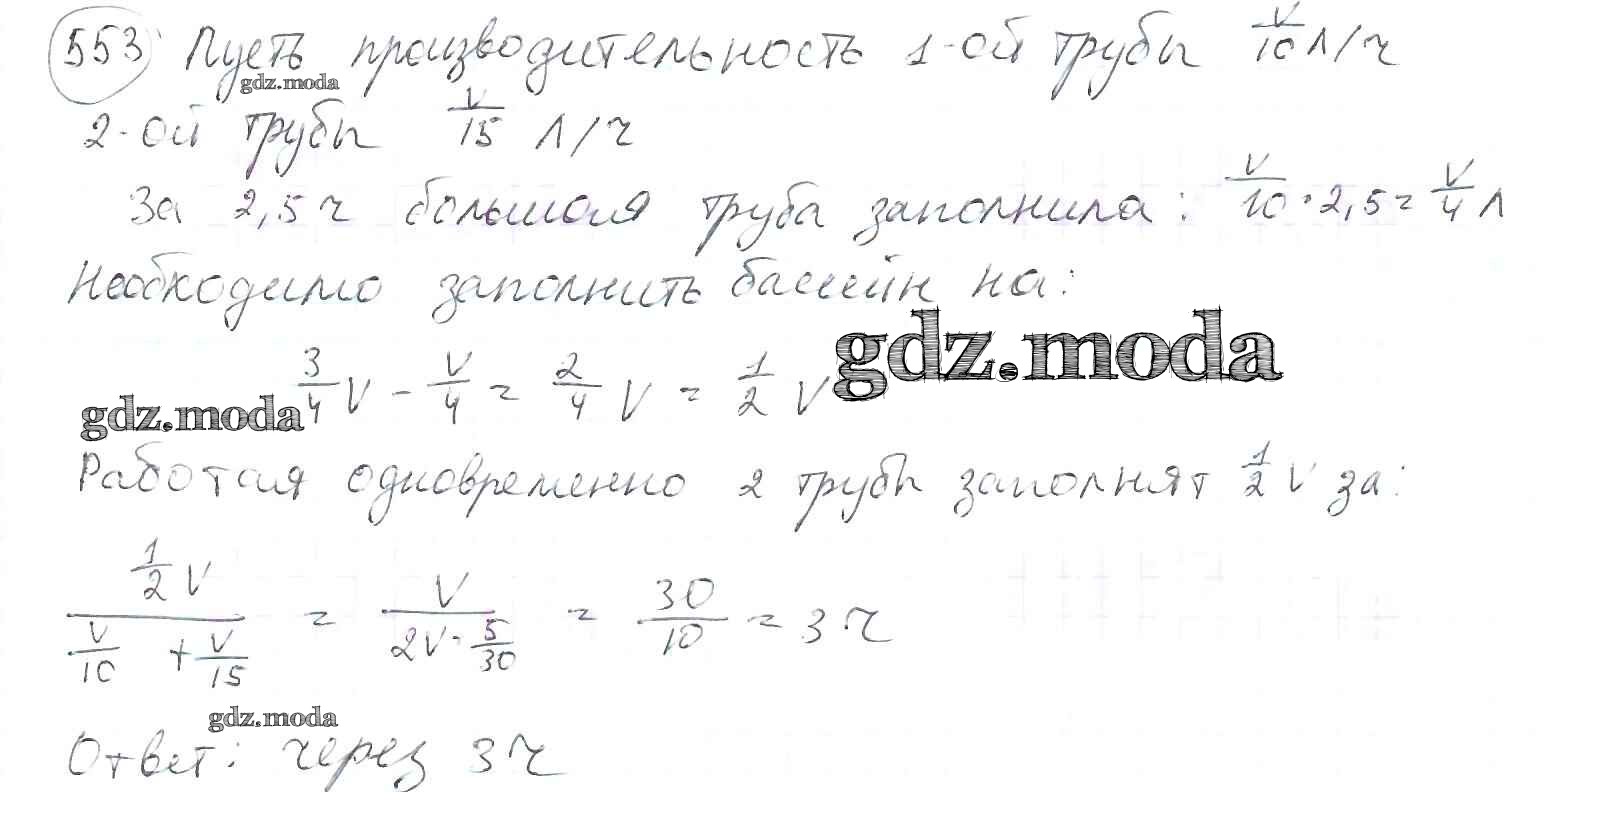 553 Пусть производительность 1-ой трубы V/10 л/ч
gdz.moda
2-ой трубы V/15 л/ч
За 2,5 ч большая труба заполнила: V/10 · 2,5 = V/4 л
Необходимо заполнить бассейн на:
3/4 V - V/4 = 2/4 V = 1/2 V
gdz.moda
gdz.moda
Работая одновременно 2 трубы заполнят 1/2 V за:
(1/2 V)/(V/10 + V/15) = V/(2V · 5/30) = 30/10 = 3 ч
gdz.moda
Ответ: через 3 ч